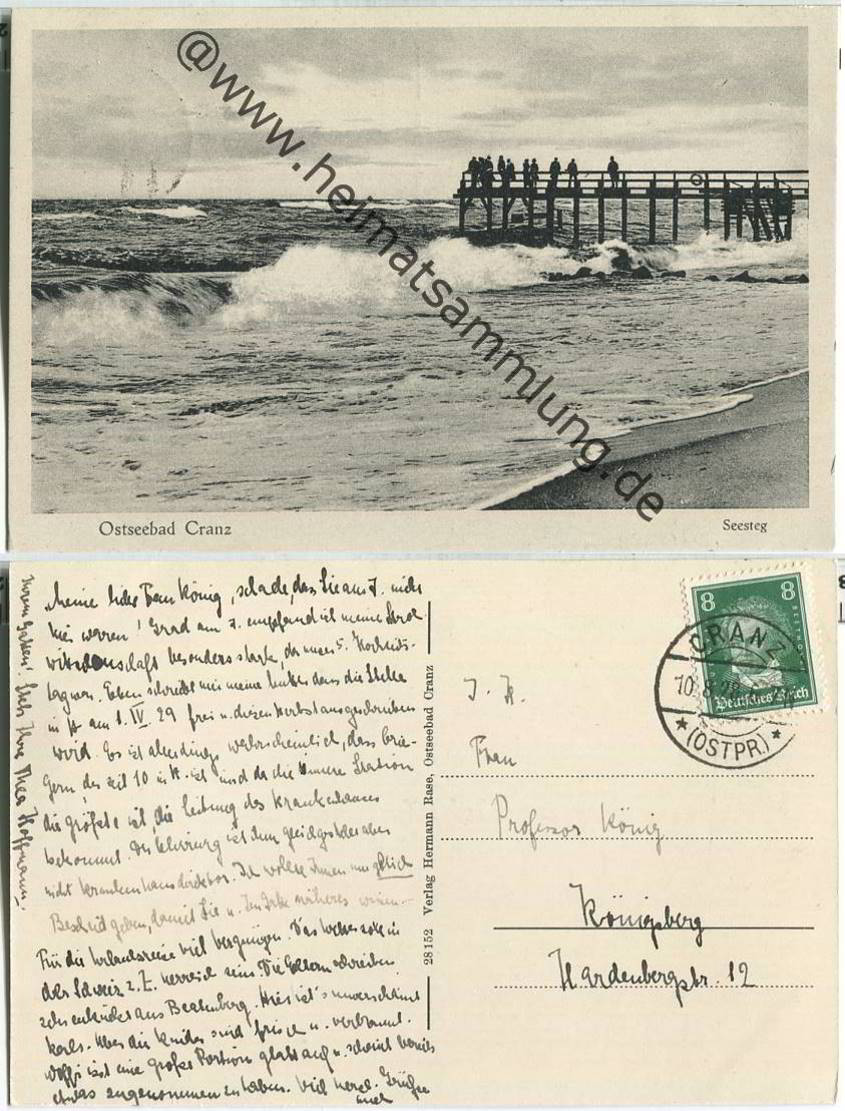 @www.heimatsammlung.de
Ostseebad Cranz
Seesteg
Meine liebe Frau König, schade, dass Sie am 7. nicht
hier waren! Grad am 7. empfand ich meine
besonders stark, da unser 5. Hochzeits-
tag war. Eben schreibt mir meine dass die Stelle
in H am 1. IV. 29 frei u. diesen Herbst ausgeschrieben
wird. Es ist allerdings wahrscheinlich, dass Grie-
gern, der seit 10 in H. ist und da die Innere Station
die größte ist, die Leitung des Krankenhauses
bekommt. Der ist dem gleichgestellt aber
nicht Krankenhausdirektor. Ich wollte Ihnen nur gleich
Bescheid geben, damit Sie u. näheres wissen.
Für die Urlaubsreise viel Vergnügen. Das Wetter soll in
der Schweiz z. Z. herrlich sein. Die Eltern schreiben
sehr entzückt aus Beatenberg. Hier ist's unverschämt
kalt. Aber die Kinder sind frisch u. verbrannt.
Wolfi isst eine große Portion glatt auf u. scheint bereits
etwas zugenommen zu haben. Viel herzl. Grüße
auch
Ihrem Gatten! Stets Ihre Thea Hoffmann.
28152 Verlag Hermann Rase, Ostseebad Cranz
8 8
Deutsches Reich
CRANZ
10.8.28
(OSTPR.)
Frau
Professor König
Königsberg
Hardenbergstr. 12